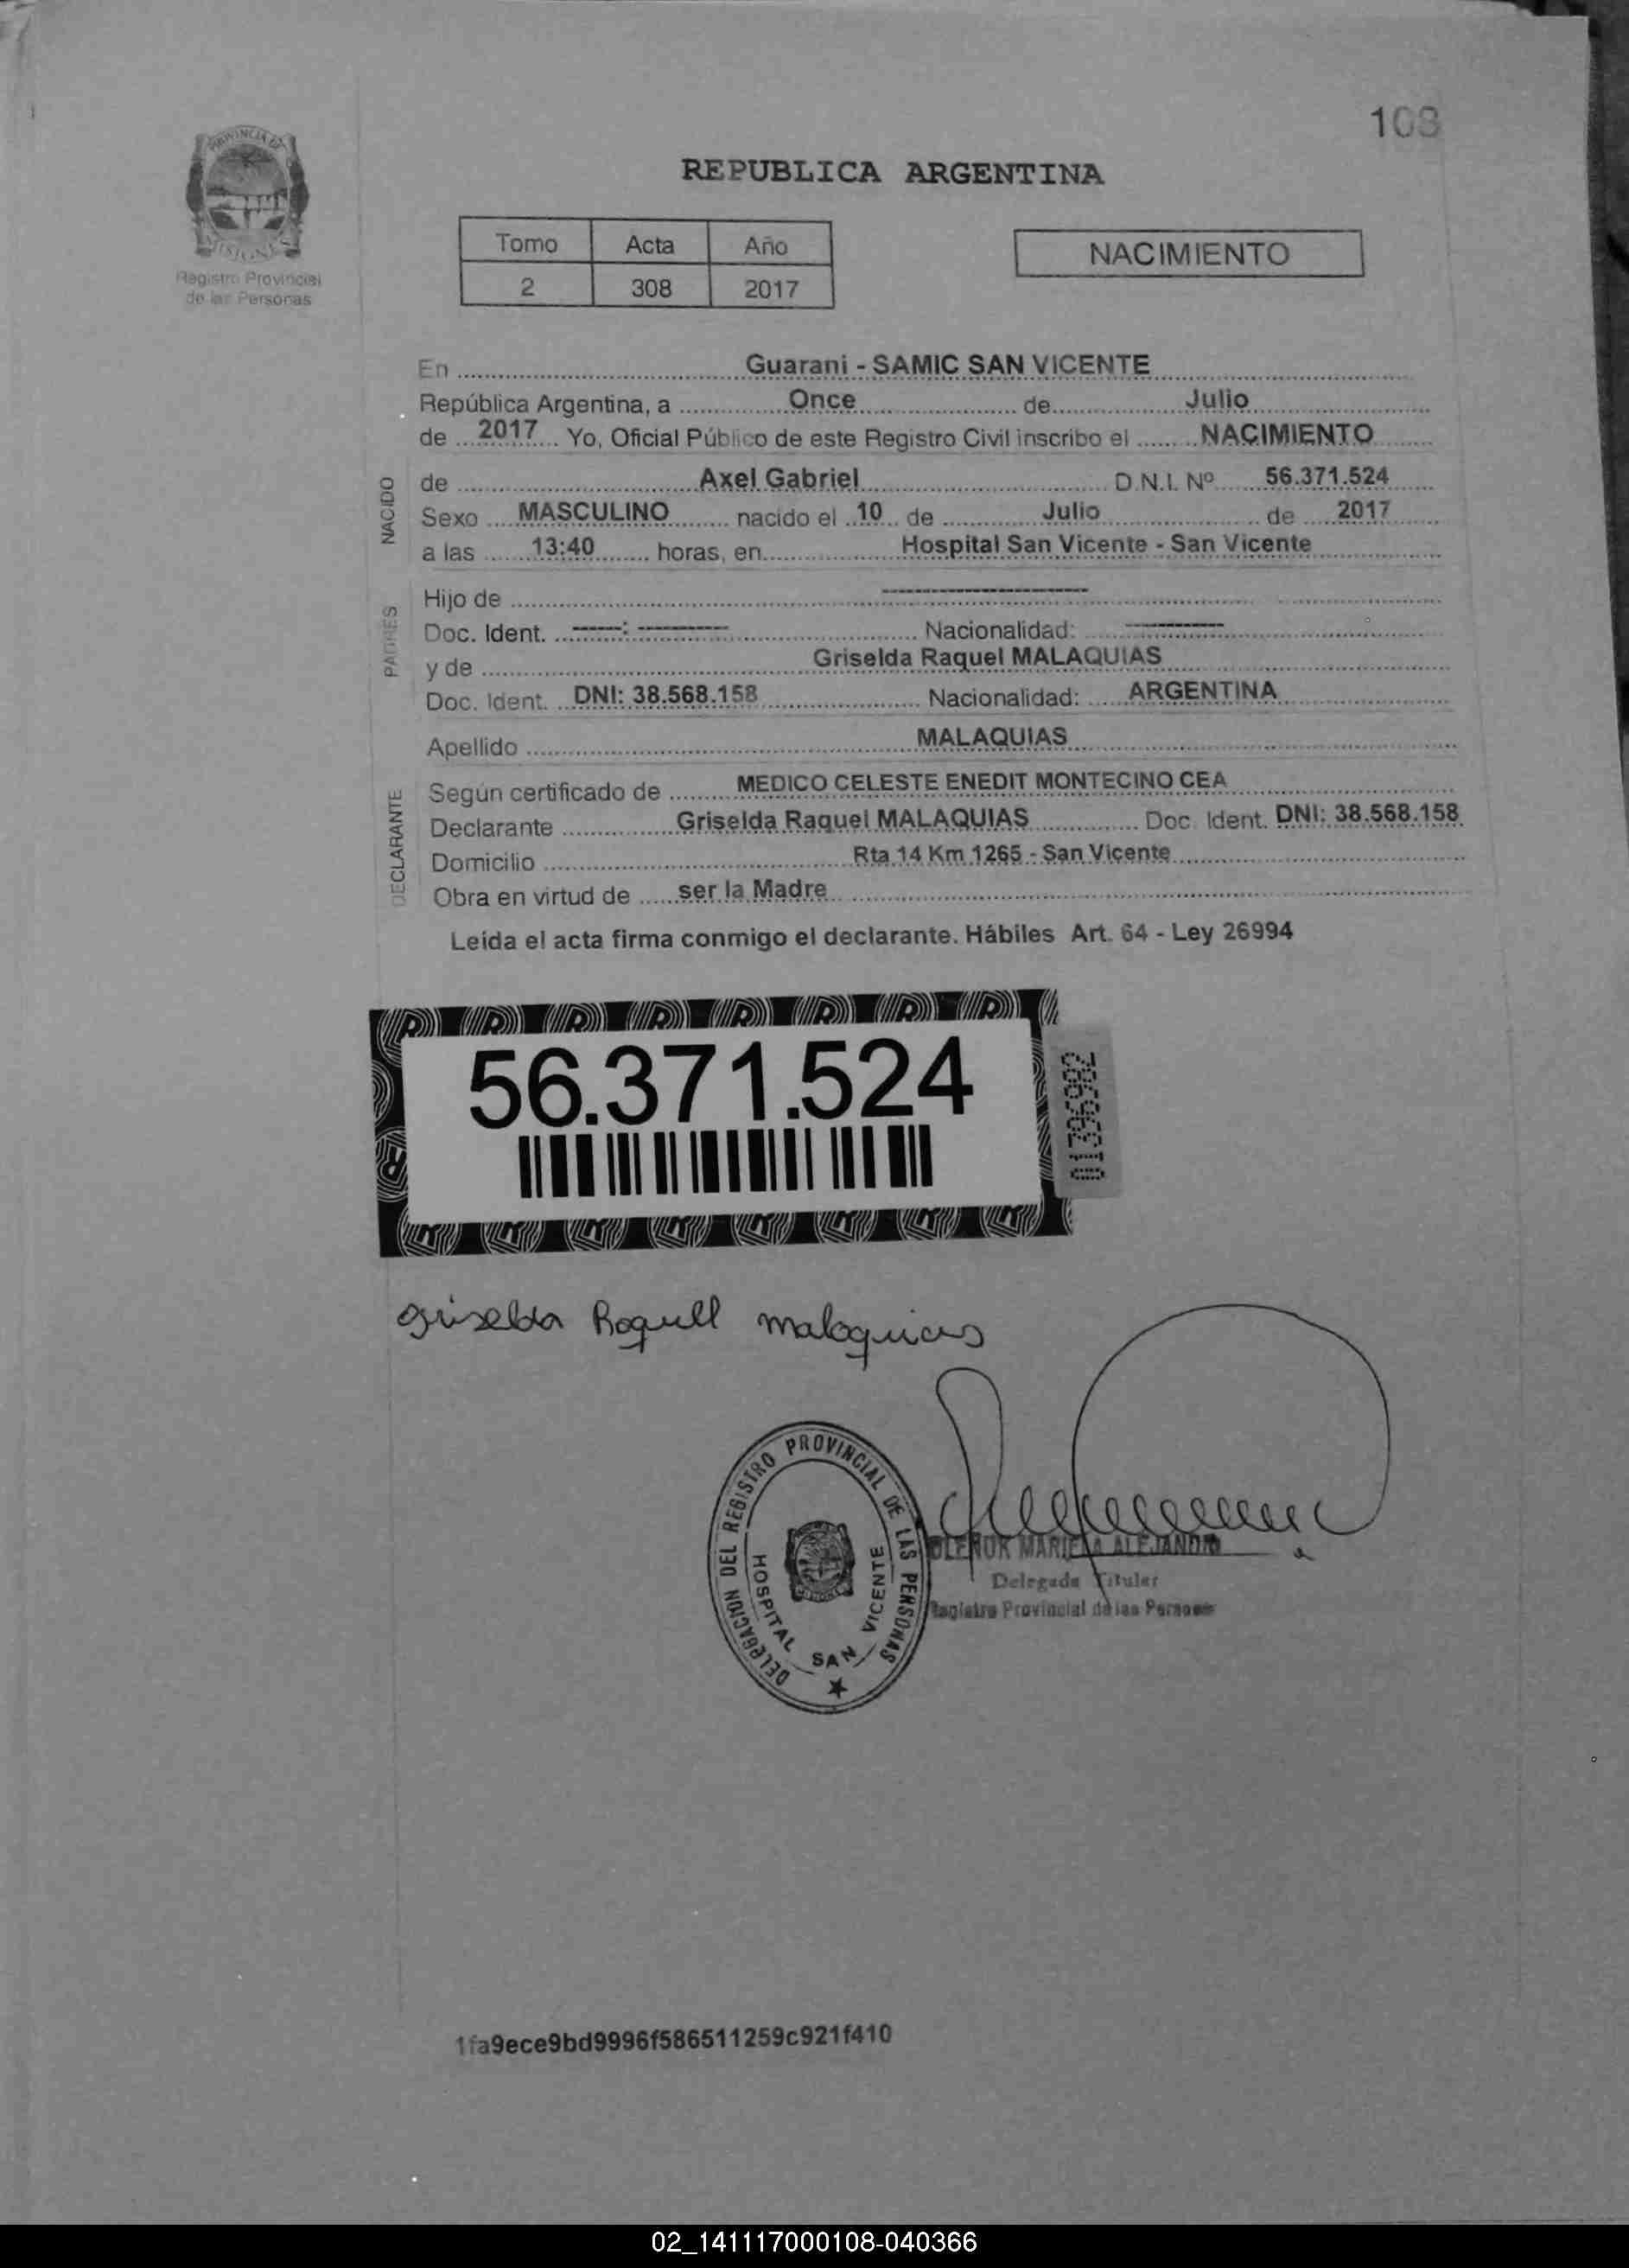 103
PROVINCIA DE
MISIONES
Registro Provincial
de las Personas
REPUBLICA ARGENTINA
Tomo Acta Año
2 308 2017
NACIMIENTO
En Guarani - SAMIC SAN VICENTE
República Argentina, a Once de Julio
de 2017 Yo, Oficial Público de este Registro Civil inscribo el NACIMIENTO
NACIDO
de Axel Gabriel D.N.I. Nº 56.371.524
Sexo MASCULINO nacido el 10 de Julio de 2017
a las 13:40 horas, en Hospital San Vicente - San Vicente
PADRES
Hijo de ----------
Doc. Ident. -----: -------- Nacionalidad: --------
y de Griselda Raquel MALAQUIAS
Doc. Ident. DNI: 38.568.158 Nacionalidad: ARGENTINA
Apellido MALAQUIAS
DECLARANTE
Según certificado de MEDICO CELESTE ENEDIT MONTECINO CEA
Declarante Griselda Raquel MALAQUIAS Doc. Ident. DNI: 38.568.158
Domicilio Rta 14 Km 1265 - San Vicente
Obra en virtud de ser la Madre
Leida el acta firma conmigo el declarante. Hábiles Art. 64 - Ley 26994
56.371.524
01396982
Griselda Roquell maloquias
DELEGACION DEL REGISTRO PROVINCIAL DE LAS PERSONAS
HOSPITAL SAN VICENTE
MARIELA ALEJANDRA
Delegada Titular
Registro Provincial de las Personas
1fa9ece9bd9996f586511259c921f410
02_141117000108-040366